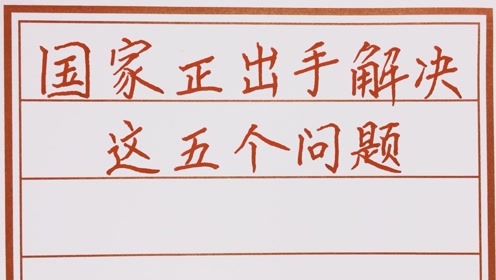 国家正出手解决
这五个问题